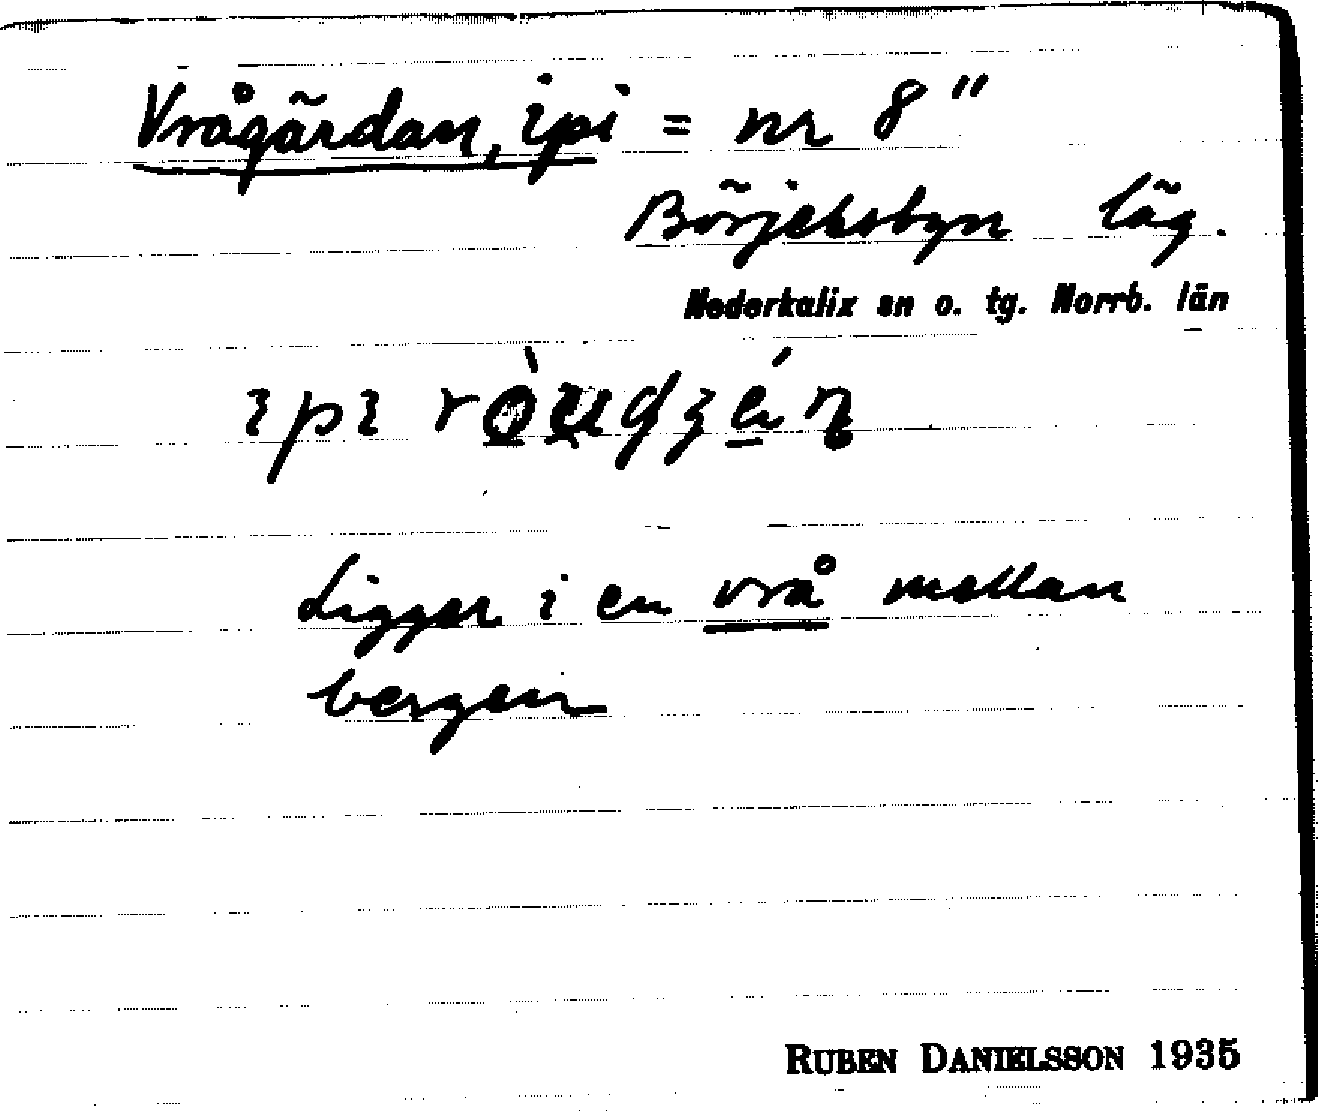 Vrågärdan, ipi = nr 8"
Börjelsbyn läg.
Nederkalix sn o. tg. Norrb. län
Ligger i en vrå mellan
bergen
RUBEN DANIELSSON 1935